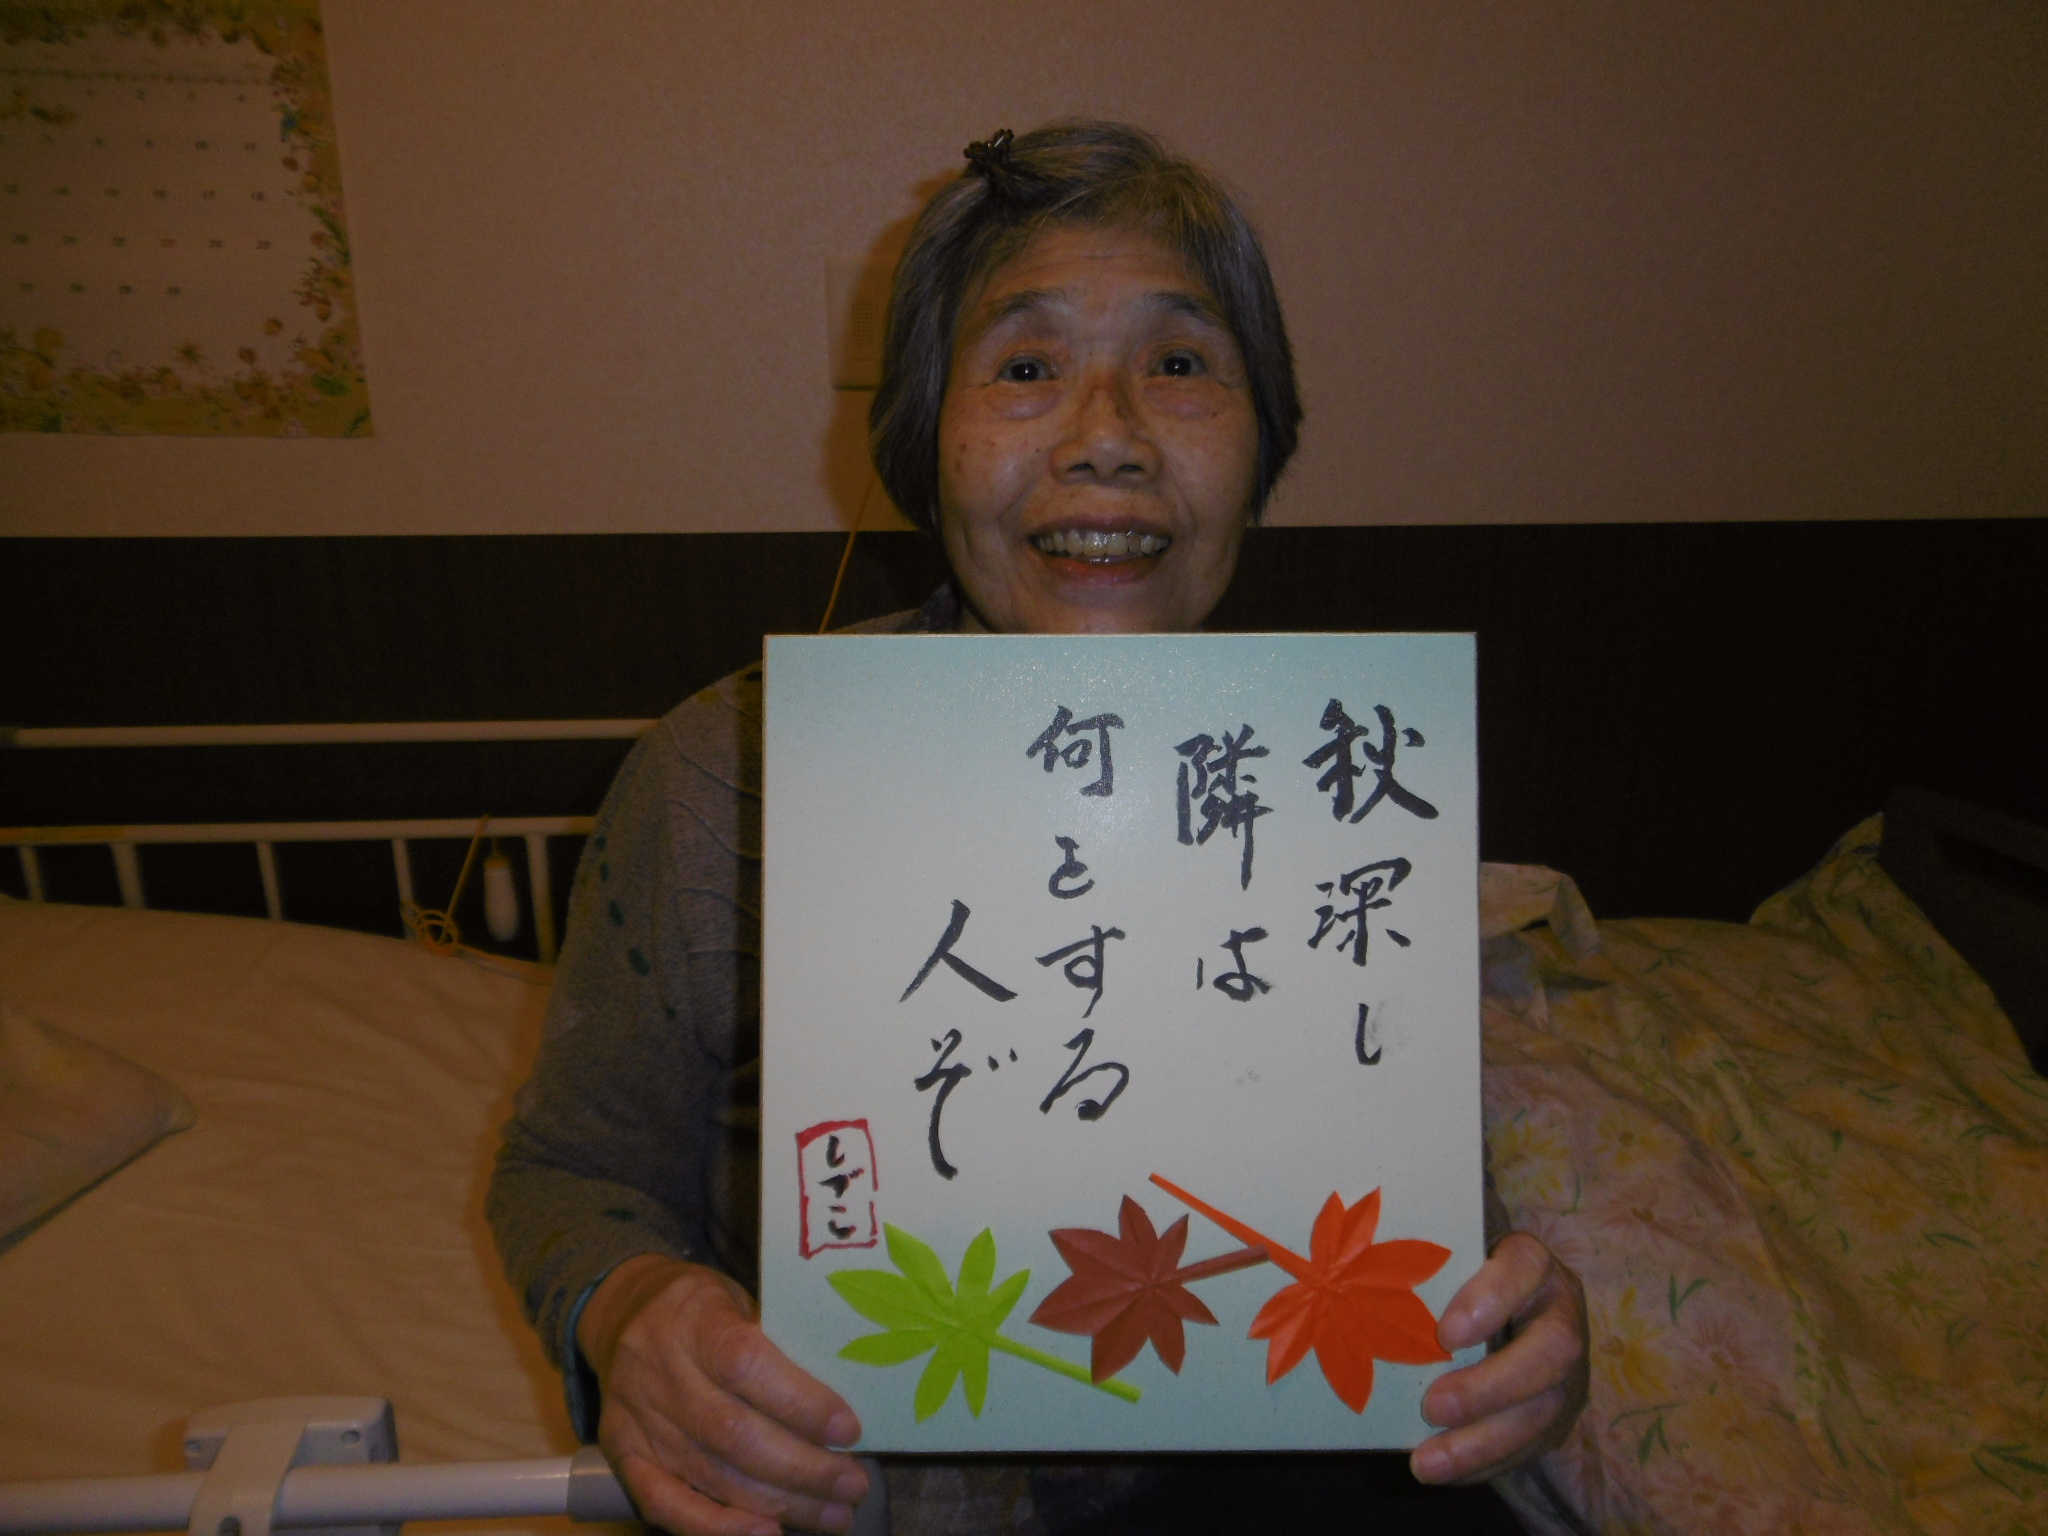 秋深し
隣は
何とする
人ぞ
しづこ